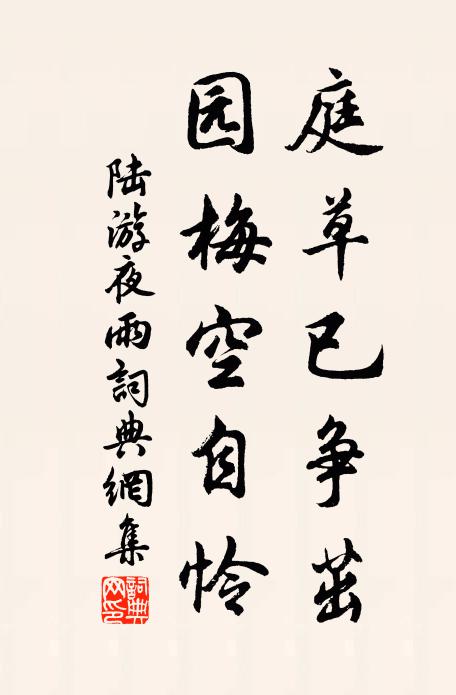 庭草已争茁
园梅空自怜
陆游夜雨詞典網集
詞典
网印